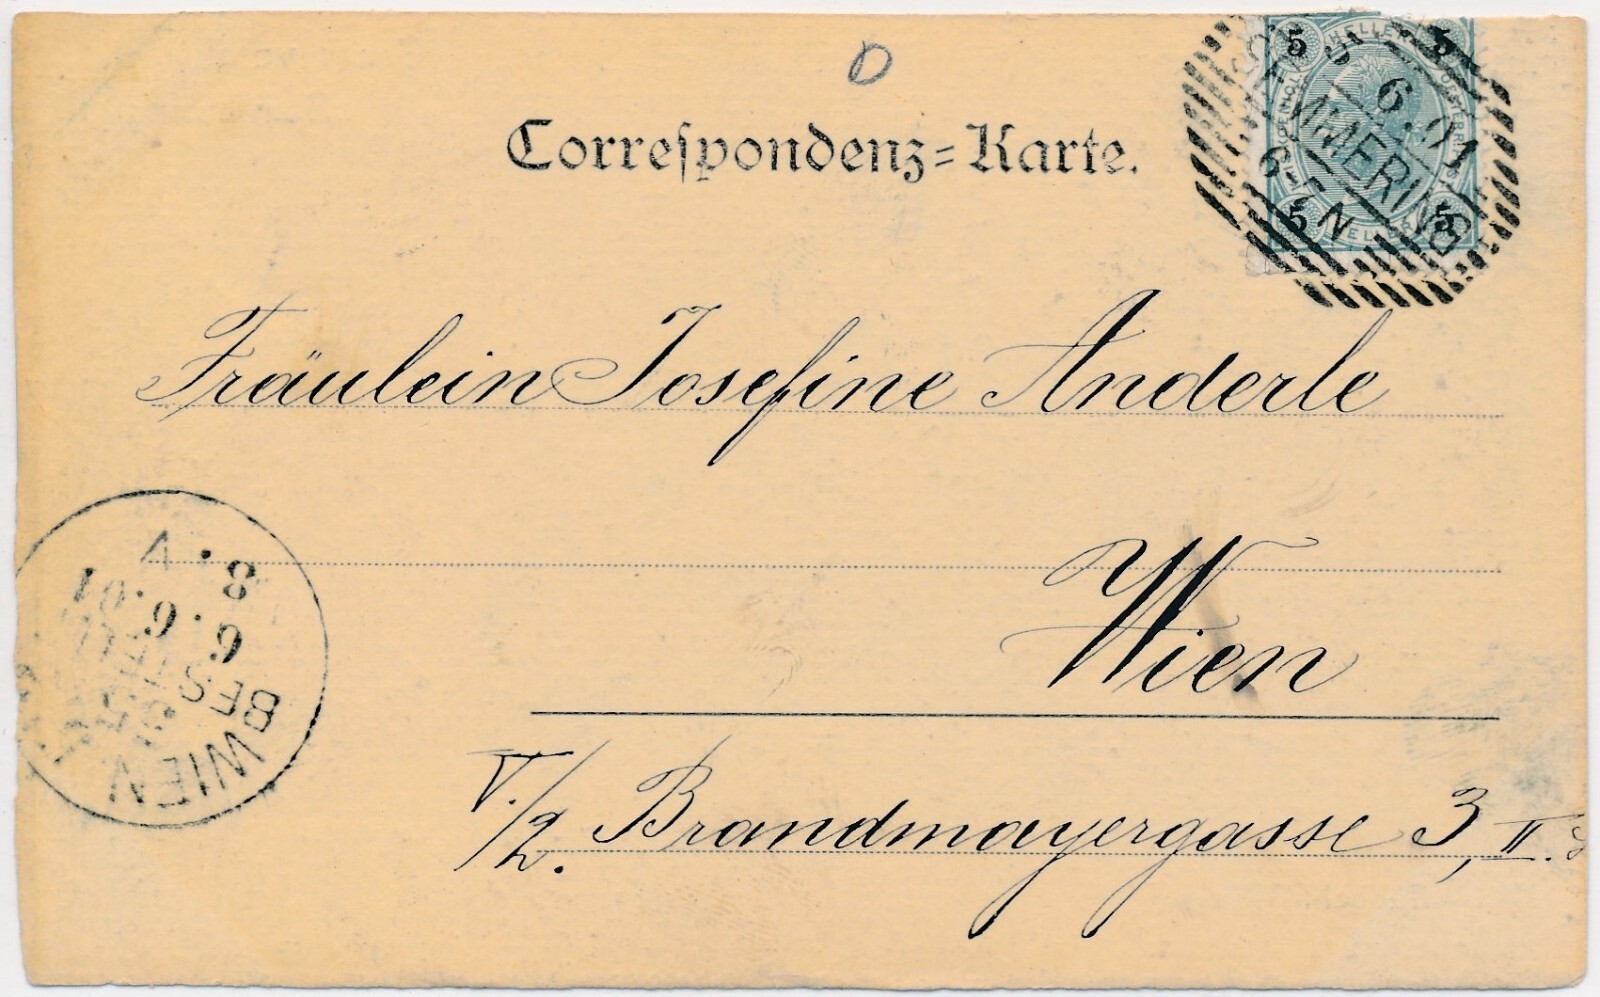 Correspondenz=Karte.
5 HELLER 5
6.01
SIMMERING
6-7N
5 5
Fräulein Josefine Anderle
Wien
V./2. Brandmayergasse 3, II.
WIEN
BEST
6.6.01
8.V